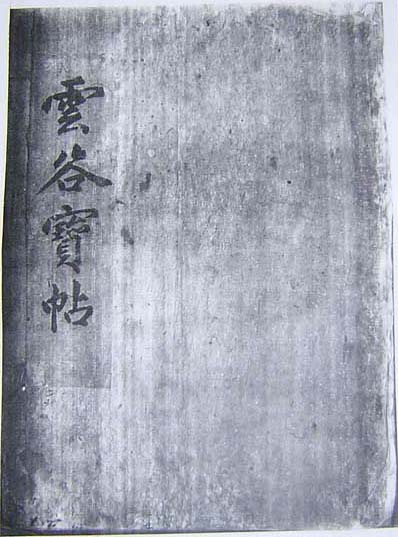 雲谷寶帖